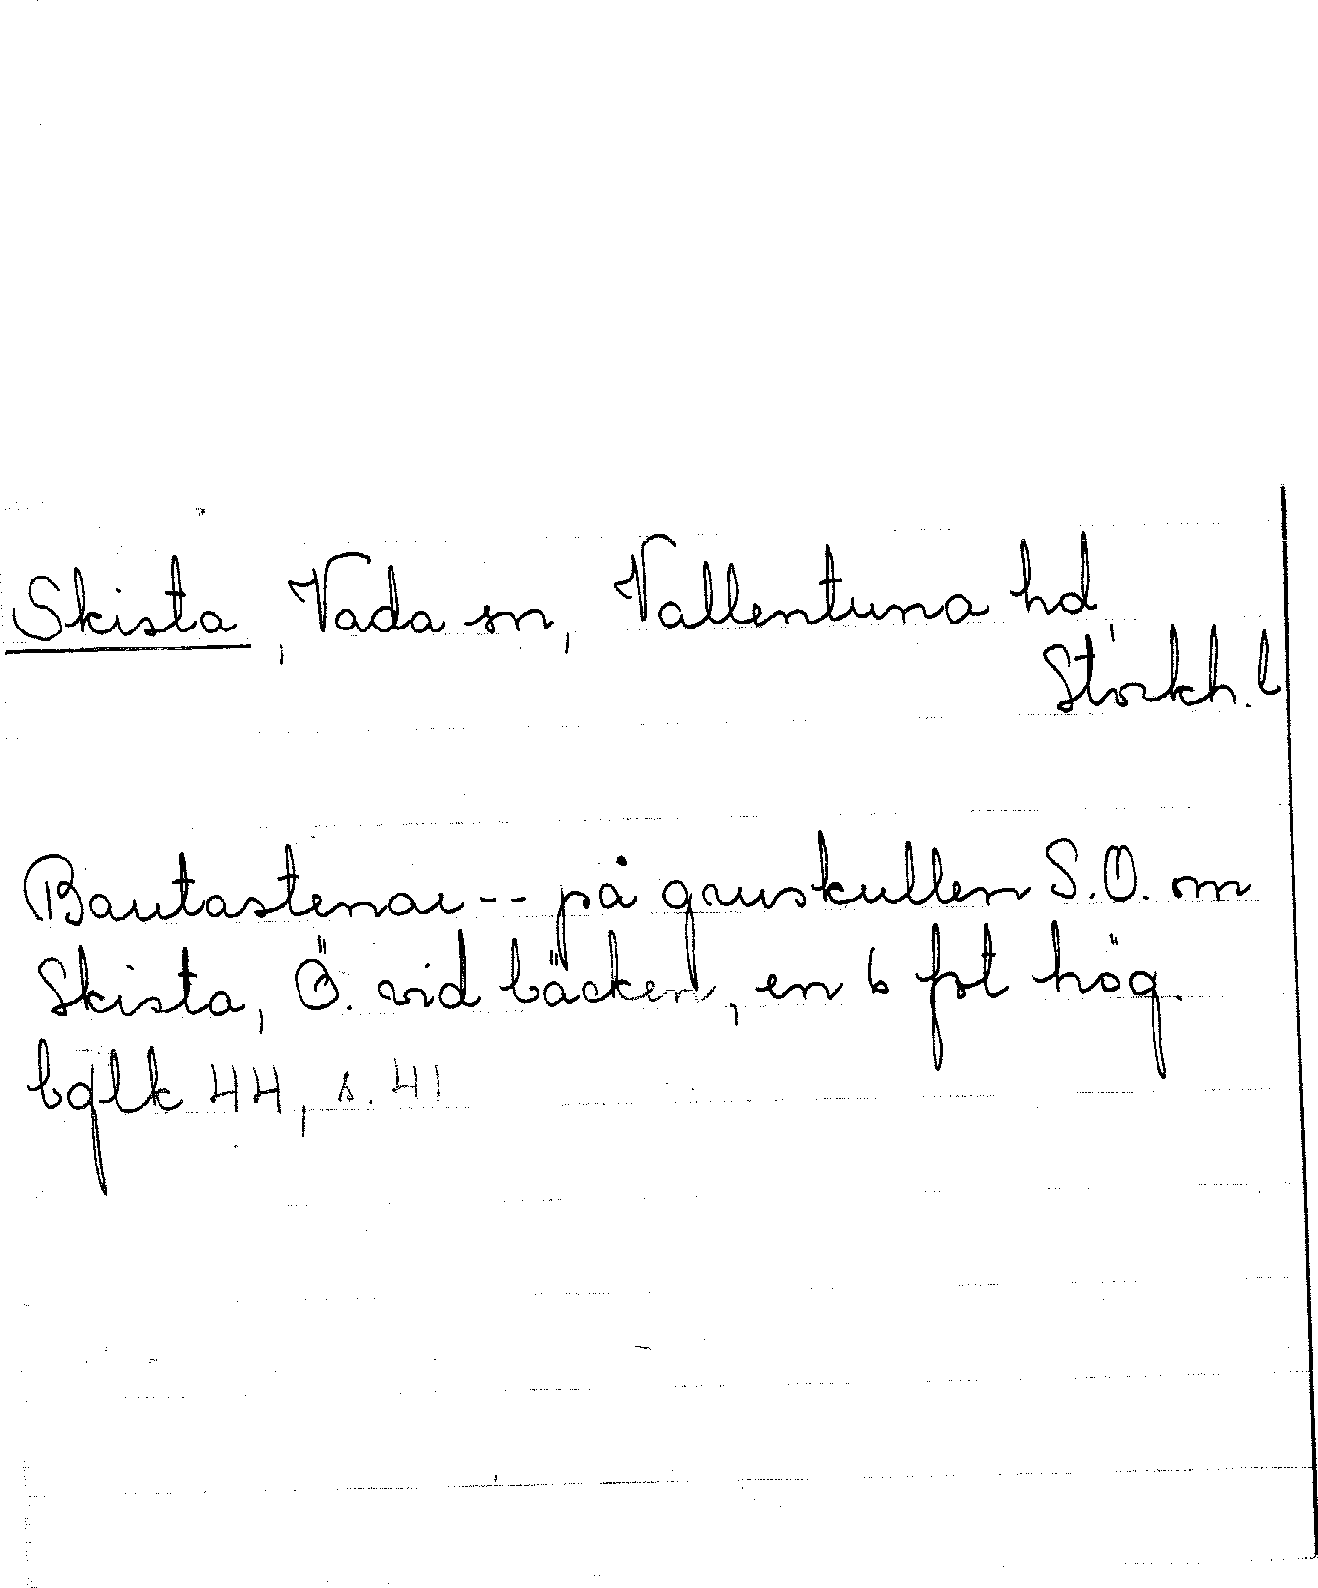 Skista, Vada sn, Vallentuna hd,
Stockh. l
Bautastenar -- på gruskullen S.O. om
Skista, Ö. vid bäcken, en 6 fot hög.
bglk 44, s. 41